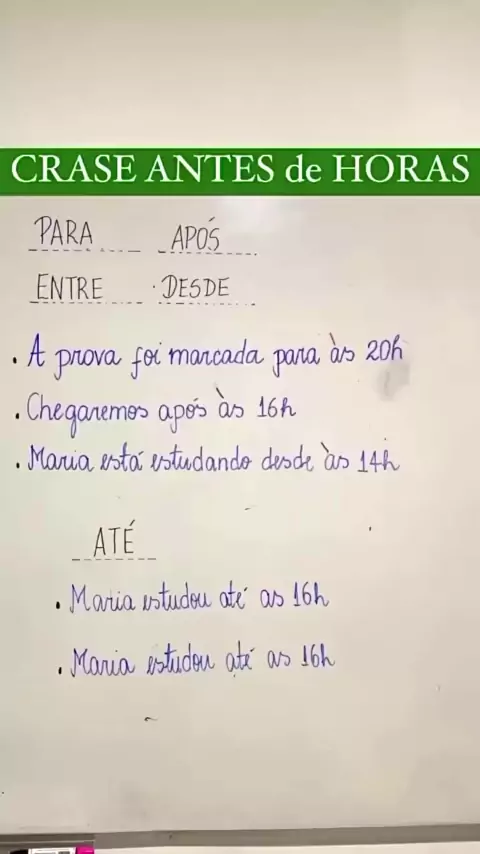 CRASE ANTES de HORAS
PARA APÓS
ENTRE DESDE
. A prova foi marcada para às 20h
. Chegaremos após às 16h
. Maria está estudando desde às 14h
ATÉ
. Maria estudou até as 16h
. Maria estudou até as 16h